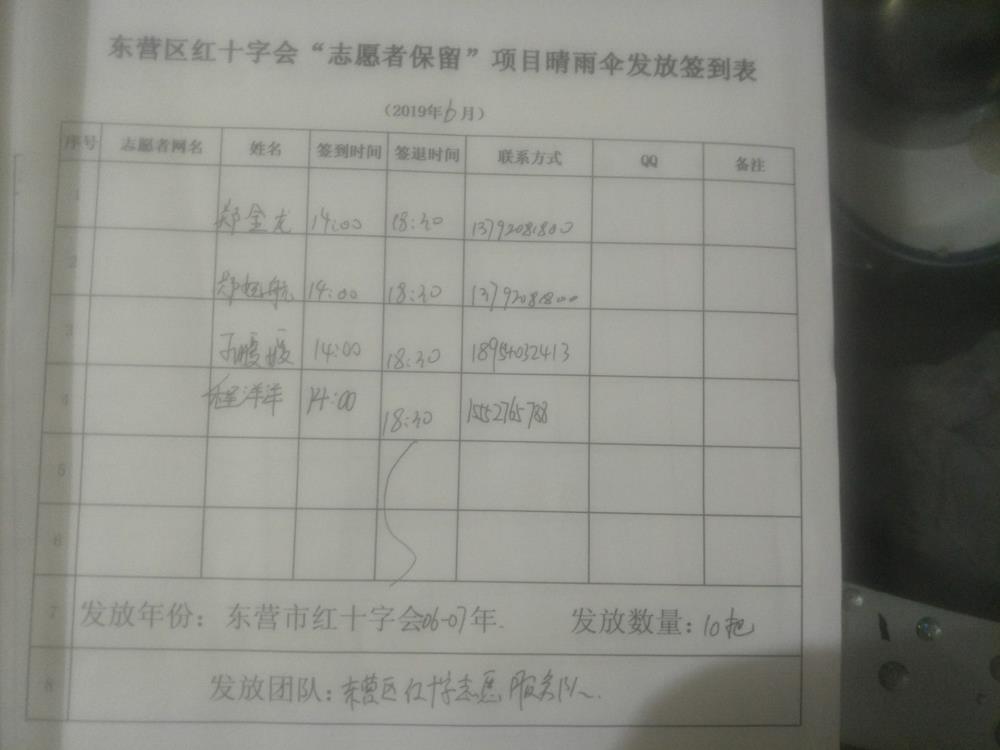 东营区红十字会“志愿者保留”项目晴雨伞发放签到表
（2019年6月）
序号 志愿者网名 姓名 签到时间 签退时间 联系方式 QQ 备注
1 郑金龙 14:00 18:30 13792081800
2 郑旭航 14:00 18:30 13792081800
3 媛媛 14:00 18:30 18954032413
4 程洋洋 14:00 18:30 15552765788
5
6
7 发放年份：东营市红十字会06-07年. 发放数量：10把
8 发放团队：东营区红十字志愿服务队.